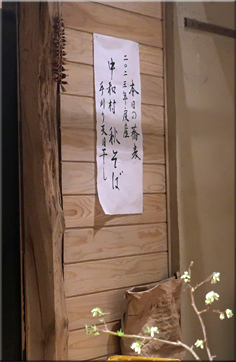 本日の蕎麦
二〇二五年度産
中和村 秋そば
手刈り天日干し